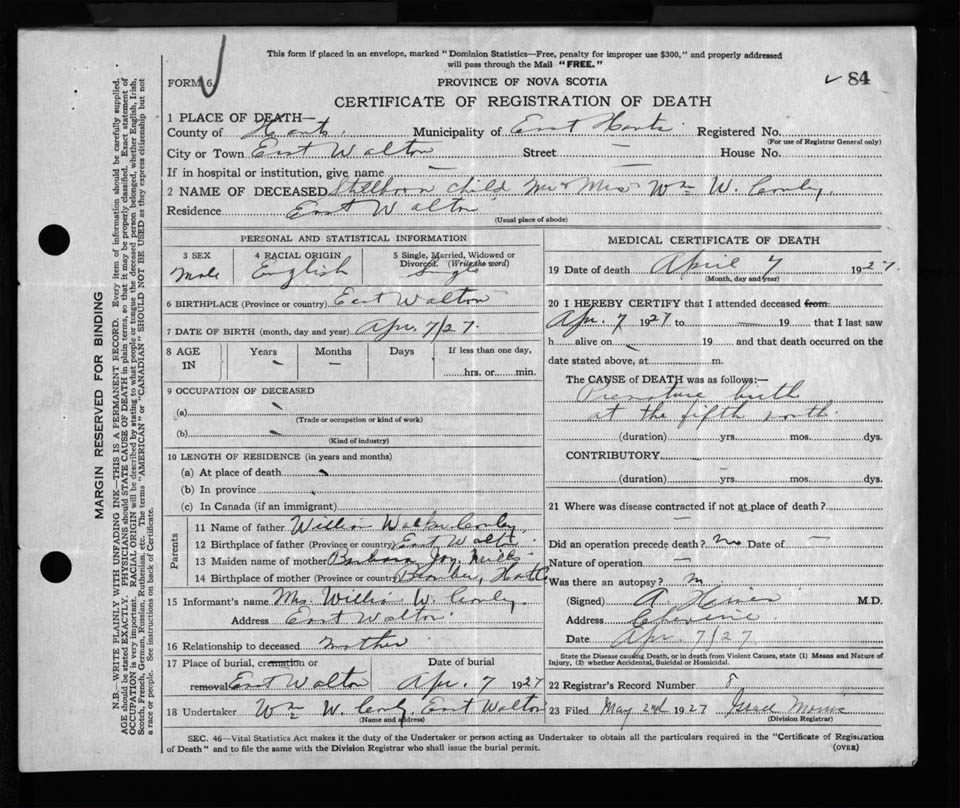 This form if placed in an envelope, marked "Dominion Statistics—Free, penalty for improper use $300," and properly addressed
will pass through the Mail "FREE."
FORM 6
PROVINCE OF NOVA SCOTIA
✓ 84
CERTIFICATE OF REGISTRATION OF DEATH
1 PLACE OF DEATH—
County of Hants. Municipality of East Hants Registered No.
(For use of Registrar General only)
City or Town East Walton Street — House No.
If in hospital or institution, give name —
2 NAME OF DECEASED Stillborn child Mr & Mrs Wm W.
Residence East Walton
(Usual place of abode)
PERSONAL AND STATISTICAL INFORMATION
3 SEX 4 RACIAL ORIGIN 5 Single, Married, Widowed or
Divorced. (Write the word)
Male English Single
6 BIRTHPLACE (Province or country) East Walton
7 DATE OF BIRTH (month, day and year) Apr. 7/27.
8 AGE IN Years Months Days If less than one day,
hrs. or min.
9 OCCUPATION OF DECEASED
(a)
(Trade or occupation or kind of work)
(b)
(Kind of industry)
10 LENGTH OF RESIDENCE (in years and months)
(a) At place of death
(b) In province
(c) In Canada (if an immigrant)
Parents
11 Name of father William
12 Birthplace of father (Province or country) East Walton
13 Maiden name of mother Barbara
14 Birthplace of mother (Province or country)
15 Informant's name Mrs. William W.
Address East Walton
16 Relationship to deceased mother
17 Place of burial, cremation or Date of burial
removal East Walton Apr. 7 1927
18 Undertaker Wm W. East Walton
(Name and address)
MEDICAL CERTIFICATE OF DEATH
19 Date of death April 7 1927
(Month, day and year)
20 I HEREBY CERTIFY that I attended deceased from:
Apr. 7 1927 to — 19 that I last saw
h alive on 19 and that death occurred on the
date stated above, at m.
The CAUSE of DEATH was as follows:—
Premature birth
at the fifth month.
(duration) yrs. mos. dys.
CONTRIBUTORY
(duration) yrs. mos. dys.
21 Where was disease contracted if not at place of death?
—
Did an operation precede death? no Date of —
Nature of operation —
Was there an autopsy?
(Signed) A. M.D.
Address
Date Apr 7/27
State the Disease causing Death, or in death from Violent Causes, state (1) Means and Nature of
Injury, (2) whether Accidental, Suicidal or Homicidal.
22 Registrar's Record Number 8
23 Filed May 2nd 1927
(Division Registrar)
SEC. 46—Vital Statistics Act makes it the duty of the Undertaker or person acting as Undertaker to obtain all the particulars required in the "Certificate of Registration
of Death" and to file the same with the Division Registrar who shall issue the burial permit.
(OVER)
MARGIN RESERVED FOR BINDING
N.B.—WRITE PLAINLY WITH UNFADING INK—THIS IS A PERMANENT RECORD. Every item of information should be carefully supplied.
AGE should be stated EXACTLY. PHYSICIANS should STATE CAUSE OF DEATH in plain terms, so that it may be properly classified. Exact statement of
OCCUPATION is very important. RACIAL ORIGIN will be described by stating to what people or tongue the deceased person belonged, whether English, Irish,
Scotch, French, German, Russian, Ruthenian, etc. The terms "AMERICAN" or "CANADIAN" SHOULD NOT BE USED as they express citizenship but not
a race or people. See instructions on back of Certificate.